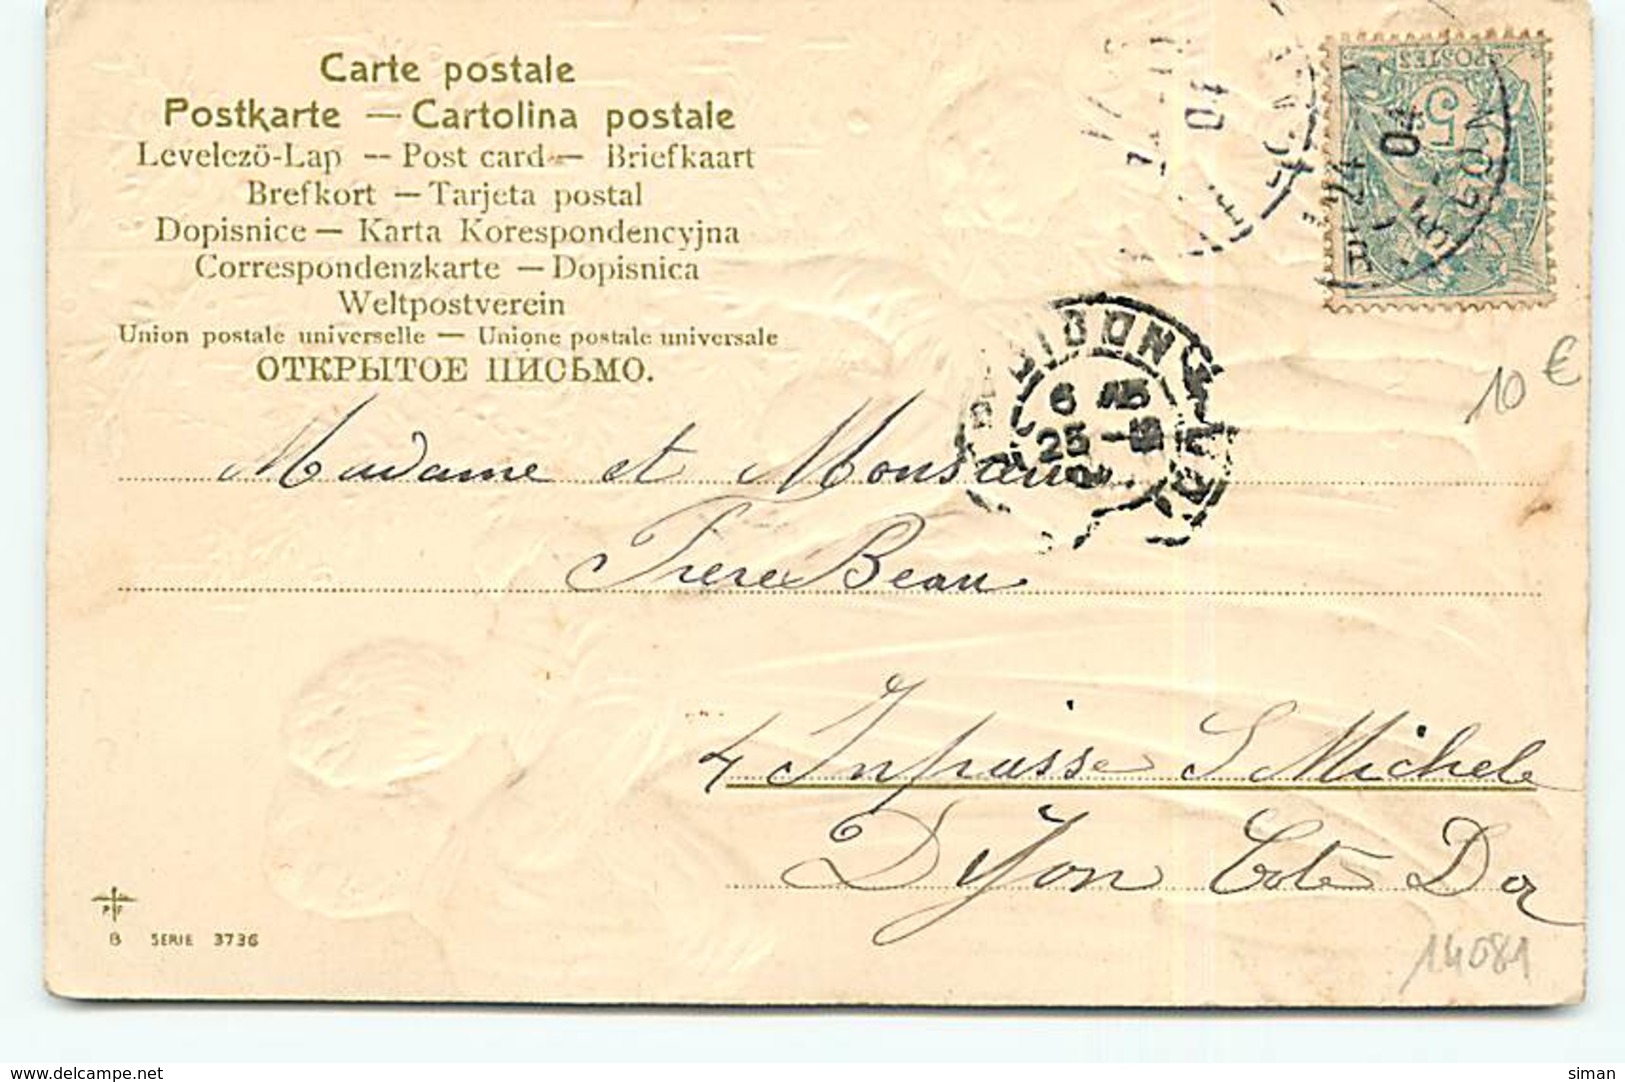 Carte postale
Postkarte — Cartolina postale
Levelező-Lap -- Post card — Briefkaart
Brefkort — Tarjeta postal
Dopisnice — Karta Korespondencyjna
Correspondenzkarte — Dopisnica
Weltpostverein
Union postale universelle — Unione postale universale
ОТКРЫТОЕ ПИСЬМО.
POSTES
5
24
04
04
LYON
DIJON
6
25
10 €
Madame et Monsieur
Frere Beau
4 Inpasse S Michele
Dijon Cote Dor
PF
B SERIE 3736
14081
www.delcampe.net
siman